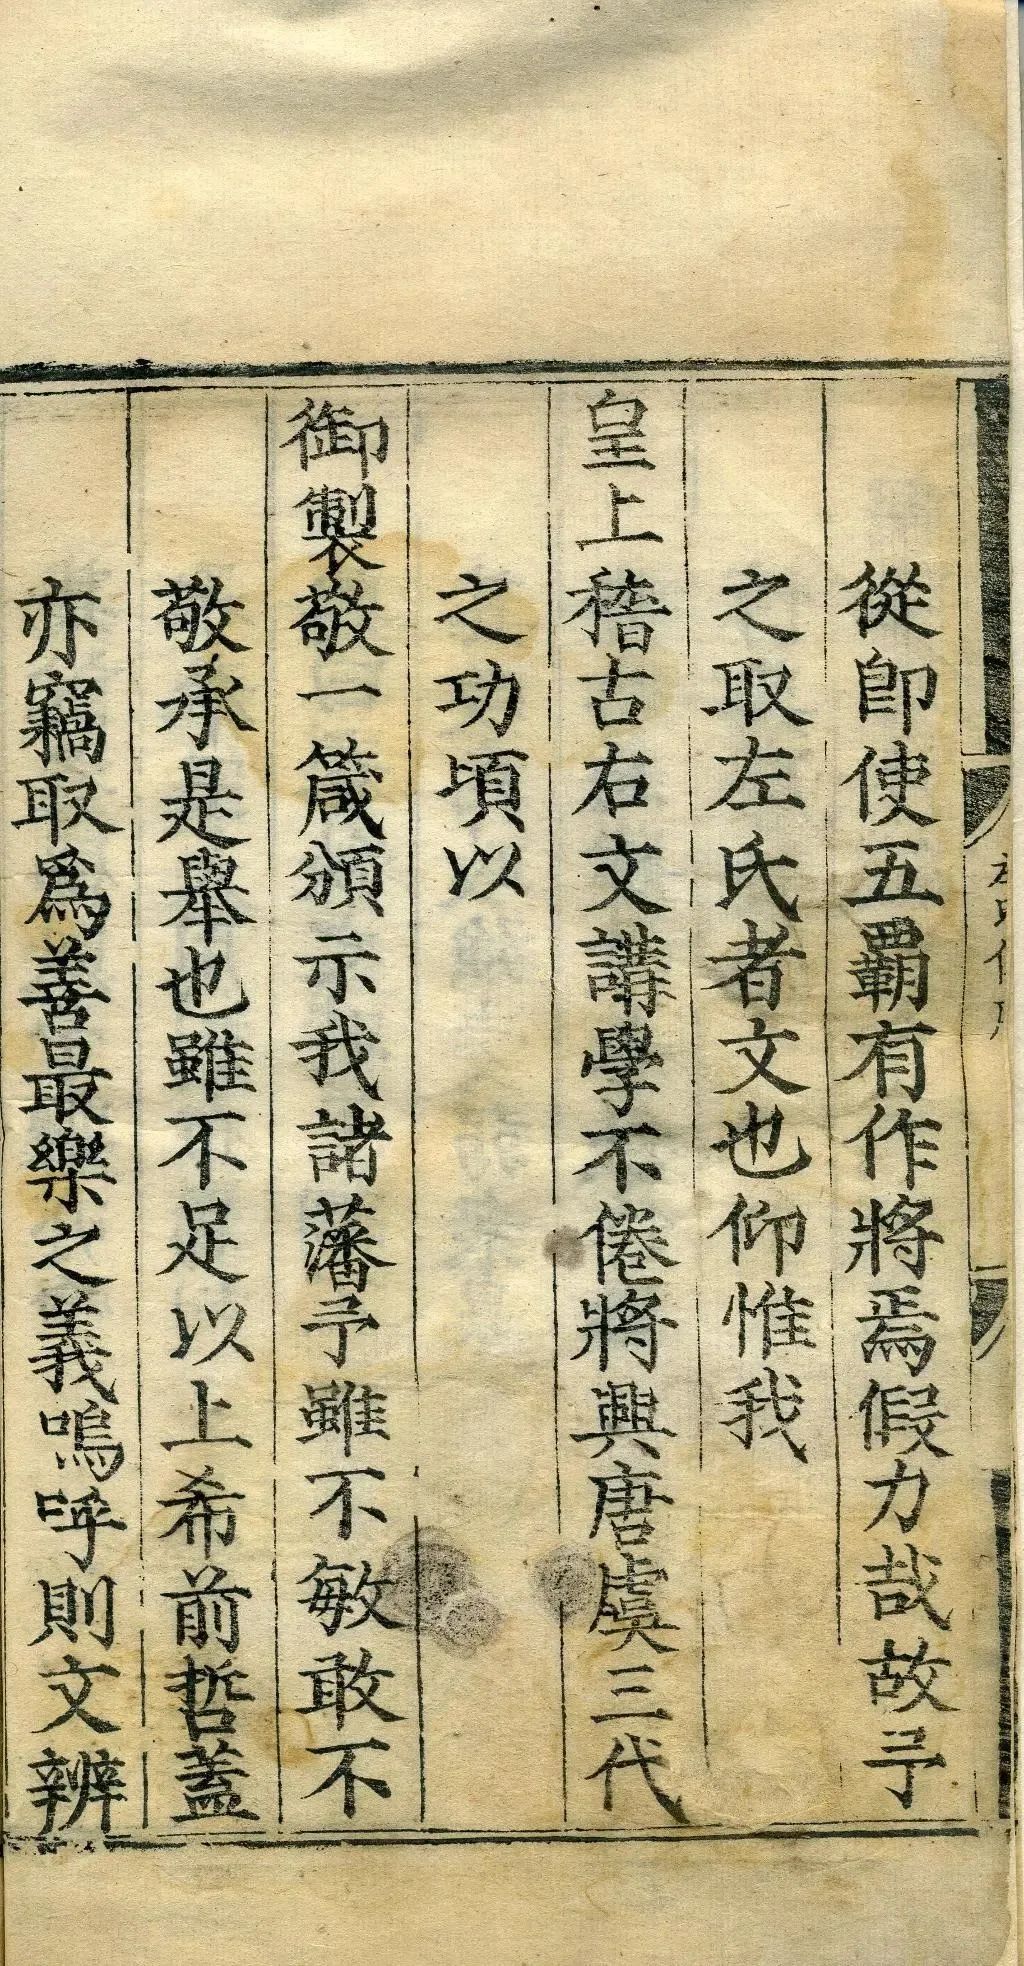 從即使五覇有作將焉假力哉故予
之取左氏者文也仰惟我
皇上稽古右文講學不倦將興唐虞三代
之功頃以
御製敬一箴頒示我諸藩予雖不敏敢不
敬承是舉也雖不足以上希前哲蓋
亦竊取爲善最樂之義嗚呼則文辨